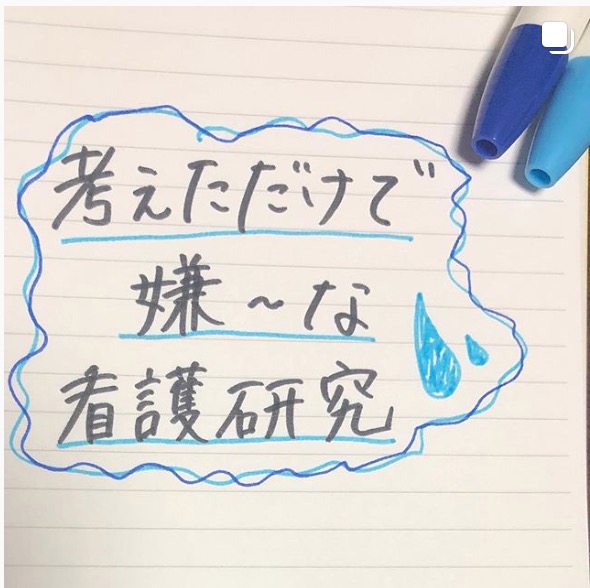 考えただけで
嫌～な
看護研究